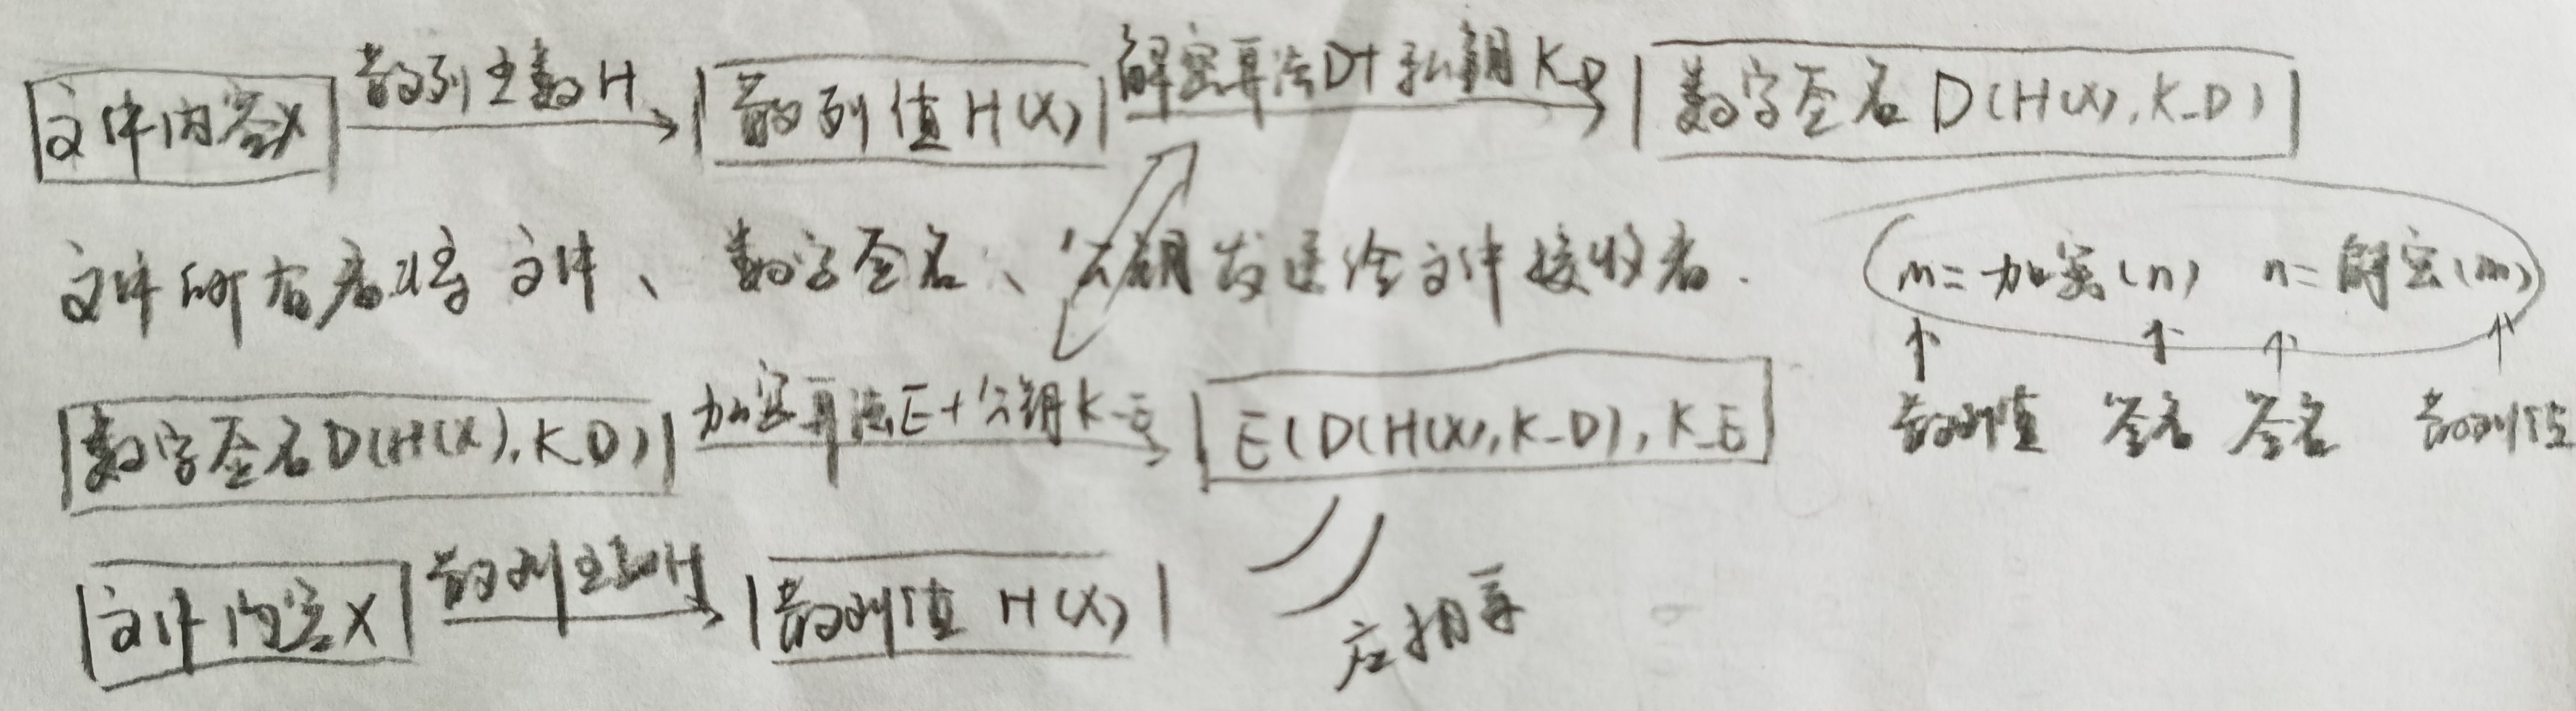 文件内容X 散列函数H 散列值H(X) 解密算法D+私钥K_D 数字签名D(H(X),K_D)
文件所有者将文件、数字签名、公钥发送给文件接收者.
m=加密(n) n=解密(m)
散列值 签名 签名 散列值
数字签名D(H(X),K_D) 加密算法E+公钥K_E E(D(H(X),K_D),K_E
文件内容X 散列函数H 散列值 H(X)
应相等